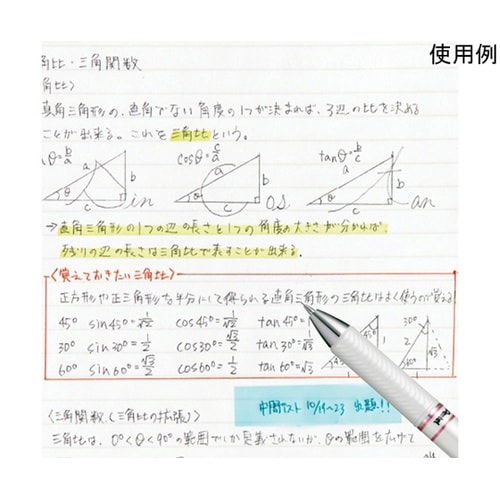 使用例
角比・三角関数
角比〉
直角三角形の、直角でない角度の1つが決まれば、3辺の比を決める
ことが出来る。これを三角比という。
sinθ=b/a cosθ=c/a tanθ=b/c
a b θ c in
a b θ c os
a b θ c an
→直角三角形の1つの辺の長さと1つの角度の大きさが分かれば、
残りの辺の長さは三角比で表すことが出来る。
〈覚えておきたい三角比〉
正方形や正三角形を半分にして得られる直角三角形の三角比はよく使うので覚える!
45° sin45°=1/√2 cos45°=1/√2 tan45°=1
30° sin30°=1/2 cos30°=√3/2 tan30°=1/√3
60° sin60°=√3/2 cos60°=1/2 tan60°=√3
45° 1 30° 2 √3
中間テスト 10/19~23 出題!!
〈三角関数(三角比の拡張)〉
三角比は、0°<θ<90°の範囲でしか定義されないが、θの範囲を広げて